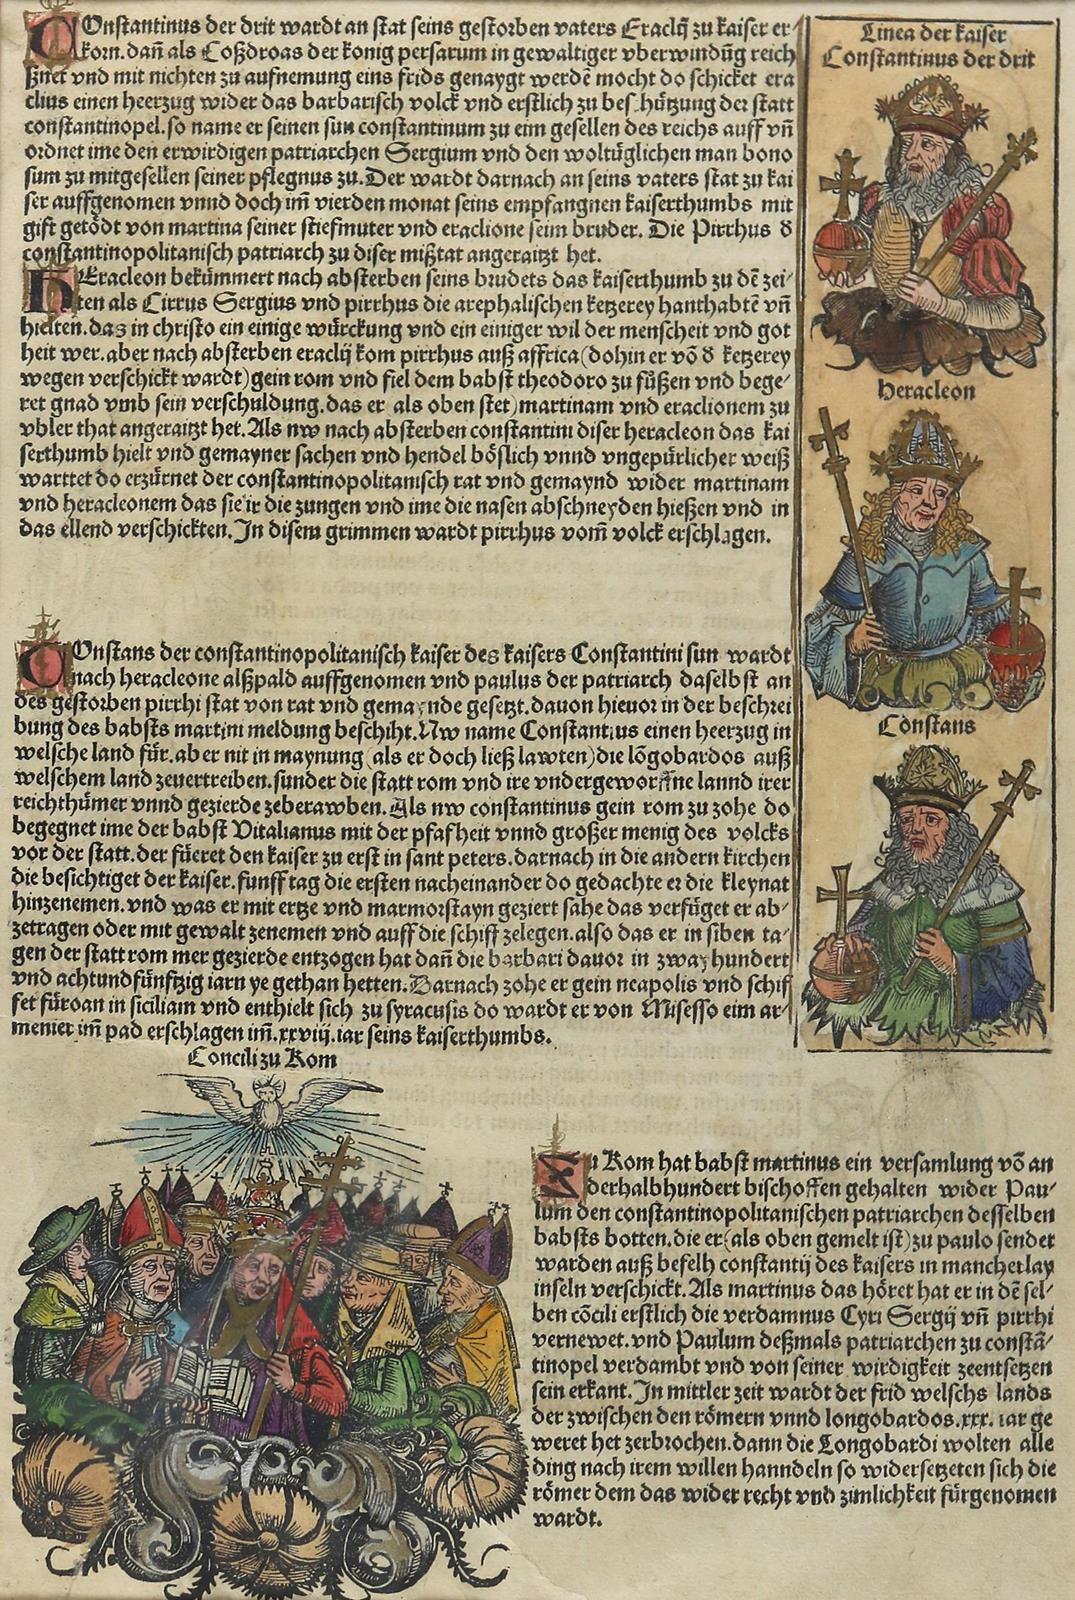 COnstantinus der drit wardt an stat seins gestorben vaters Eraclij zu kaiser er-
korn. dañ als Coßdroas der konig persarum in gewaltiger vberwindũg reich
ßnet vnd mit nichten zu aufnemung eins frids genaygt werdẽ mocht do schicket era
clius einen heerzug wider das barbarisch volck vnd erstlich zu beschützung der statt
constantinopel. so name er seinen sun constantinum zu eim gesellen des reichs auff vñ
ordnet ime den erwirdigen patriarchen Sergium vnd den woltüglichen man bono
sum zu mitgesellen seiner pflegnus zu. Der wardt darnach an seins vaters stat zu kai
ser auffgenomen vnnd doch im̃ vierden monat seins empfangnen kaiserthumbs mit
gift getödt von martina seiner stiefmuter vnd eraclione seim bruder. Die Pirrhus d̕
constantinopolitanisch patriarch zu diser mißtat angeraitzt het.
HEracleon bekümmert nach absterben seins bruders das kaiserthumb zu dẽ zei-
ten als Cirrus Sergius vnd pirrhus die arephalischen ketzerey hanthabtẽ vñ
hielten. das in christo ein einige würckung vnd ein einiger wil der menscheit vnd got
heit wer. aber nach absterben eraclij kom pirrhus auß affrica (dohin er võ d̕ ketzerey
wegen verschickt wardt) gein rom vnd fiel dem babst theodoro zu füßen vnd bege-
ret gnad vmb sein verschuldung. das er als oben stet) martinam vnd eraclionem zu
vbler that angeraitzt het. Als nw nach absterben constantini diser heracleon das kai
serthumb hielt vnd gemayner sachen vnd hendel böslich vnnd vngepürlicher weiß
warttet do erzürnet der constantinopolitanisch rat vnd gemaynd wider martinam
vnd heracleonem das sie ir die zungen vnd ime die nasen abschneyden hießen vnd in
das ellend verschickten. In disem grimmen wardt pirrhus vom̃ volck erschlagen.
COnstans der constantinopolitanisch kaiser des kaisers Constantini sun wardt
nach heracleone alßpald auffgenomen vnd paulus der patriarch daselbst an
des gestorben pirrhi stat von rat vnd gemaynde gesetzt. dauon hieuor in der beschrei
bung des babsts martini meldung beschiht. Nw name Constantius einen heerzug in
welsche land für. aber nit in maynung (als er doch ließ lawten) die lõgobardos auß
welschem land zeuertreiben. sunder die statt rom vnd ire vndergeworffne lannd irer
reichthümer vnnd gezierde zeberawben. Als nw constantinus gein rom zu zohe do
begegnet ime der babst Vitalianus mit der pfafheit vnnd großer menig des volcks
vor der statt. der füeret den kaiser zu erst in sant peters. darnach in die andern kirchen
die besichtiget der kaiser. funff tag die ersten nacheinander do gedachte er die kleynat
hinzenemen. vnd was er mit ertze vnd marmorstayn geziert sahe das verfüget er ab-
zetragen oder mit gewalt zenemen vnd auff die schiff zelegen. also das er in siben ta-
gen der statt rom mer gezierde entzogen hat dañ die barbari dauor in zwayhundert
vnd achtundfünftzig iarn ye gethan hetten. Darnach zohe er gein neapolis vnd schif
fet füroan in siciliam vnd enthielt sich zu syracusis do wardt er von Misesso eim ar-
menier im̃ pad erschlagen im̃. xxviij. iar seins kaiserthumbs.
Linea der kaiser
Constantinus der drit
Heracleon
Constans
Concili zu Rom
Zu Rom hat babst martinus ein versamlung võ an
derhalbhundert bischoffen gehalten wider Pau-
lum den constantinopolitanischen patriarchen desselben
babsts botten. die er (als oben gemelt ist) zu paulo sendet
warden auß befelh constantij des kaisers in mancherlay
inseln verschickt. Als martinus das höret hat er in dẽ sel-
ben cõcili erstlich die verdamnus Cyri Sergij vñ pirrhi
vernewet. vnd Paulum deßmals patriarchen zu constã-
tinopel verdambt vnd von seiner wirdigkeit zeentsetzen
sein erkant. In mittler zeit wardt der frid welschs lands
der zwischen den römern vnnd longobardos. xxx. iar ge
weret het zerbrochen. dann die Longobardi wolten alle
ding nach irem willen hanndeln so widersetzeten sich die
römer dem das wider recht vnd zimlichkeit fürgenomen
wardt.